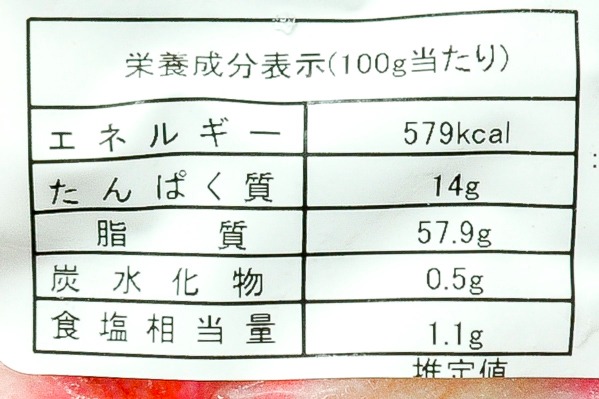 栄養成分表示(100g当たり)
エネルギー 579kcal
たんぱく質 14g
脂質 57.9g
炭水化物 0.5g
食塩相当量 1.1g
推定値